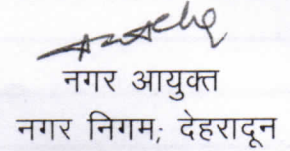 नगर आयुक्त
नगर निगम; देहरादून